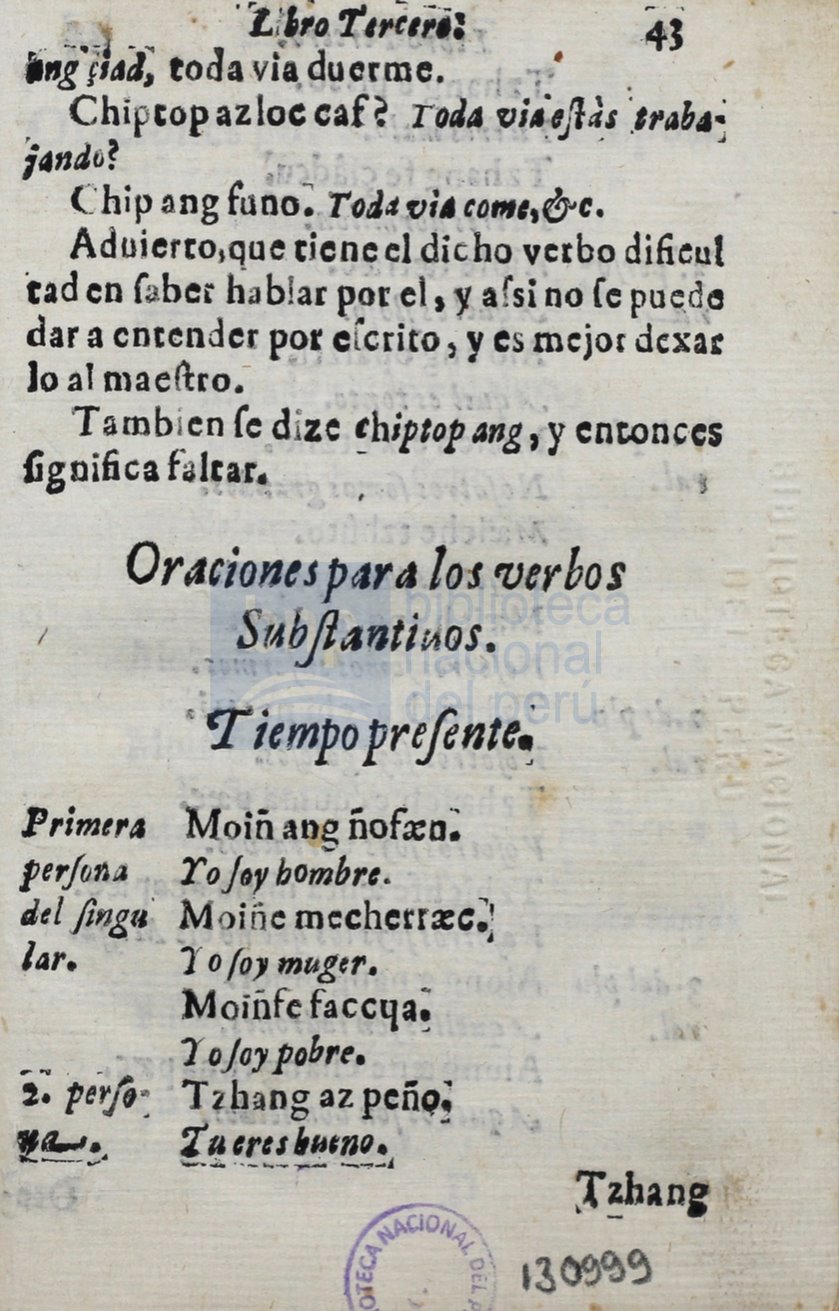 Libro Tercero. 43
ang çiad, toda via duerme.
Chiptop az loc caf? Toda via estàs traba-
jando?
Chip ang funo. Toda via come, &c.
Aduierto, que tiene el dicho verbo dificul
tad en saber hablar por el, y assi no se puede
dar a entender por escrito, y es mejor dexar
lo al maestro.
Tambien se dize chiptop ang, y entonces
significa faltar.
Oraciones para los verbos
Substantiuos.
Tiempo presente.
Primera Moiñ ang ñofæn.
persona Yo soy hombre.
del singu Moiñe mecherræc.
lar. Yo soy muger.
Moiñfe faccqa.
Yo soy pobre.
2. perso- Tzhang az peño.
na. Tu eres bueno.
Tzhang
biblioteca
nacional
del perú
OTECA NACIONAL DEL P
130999